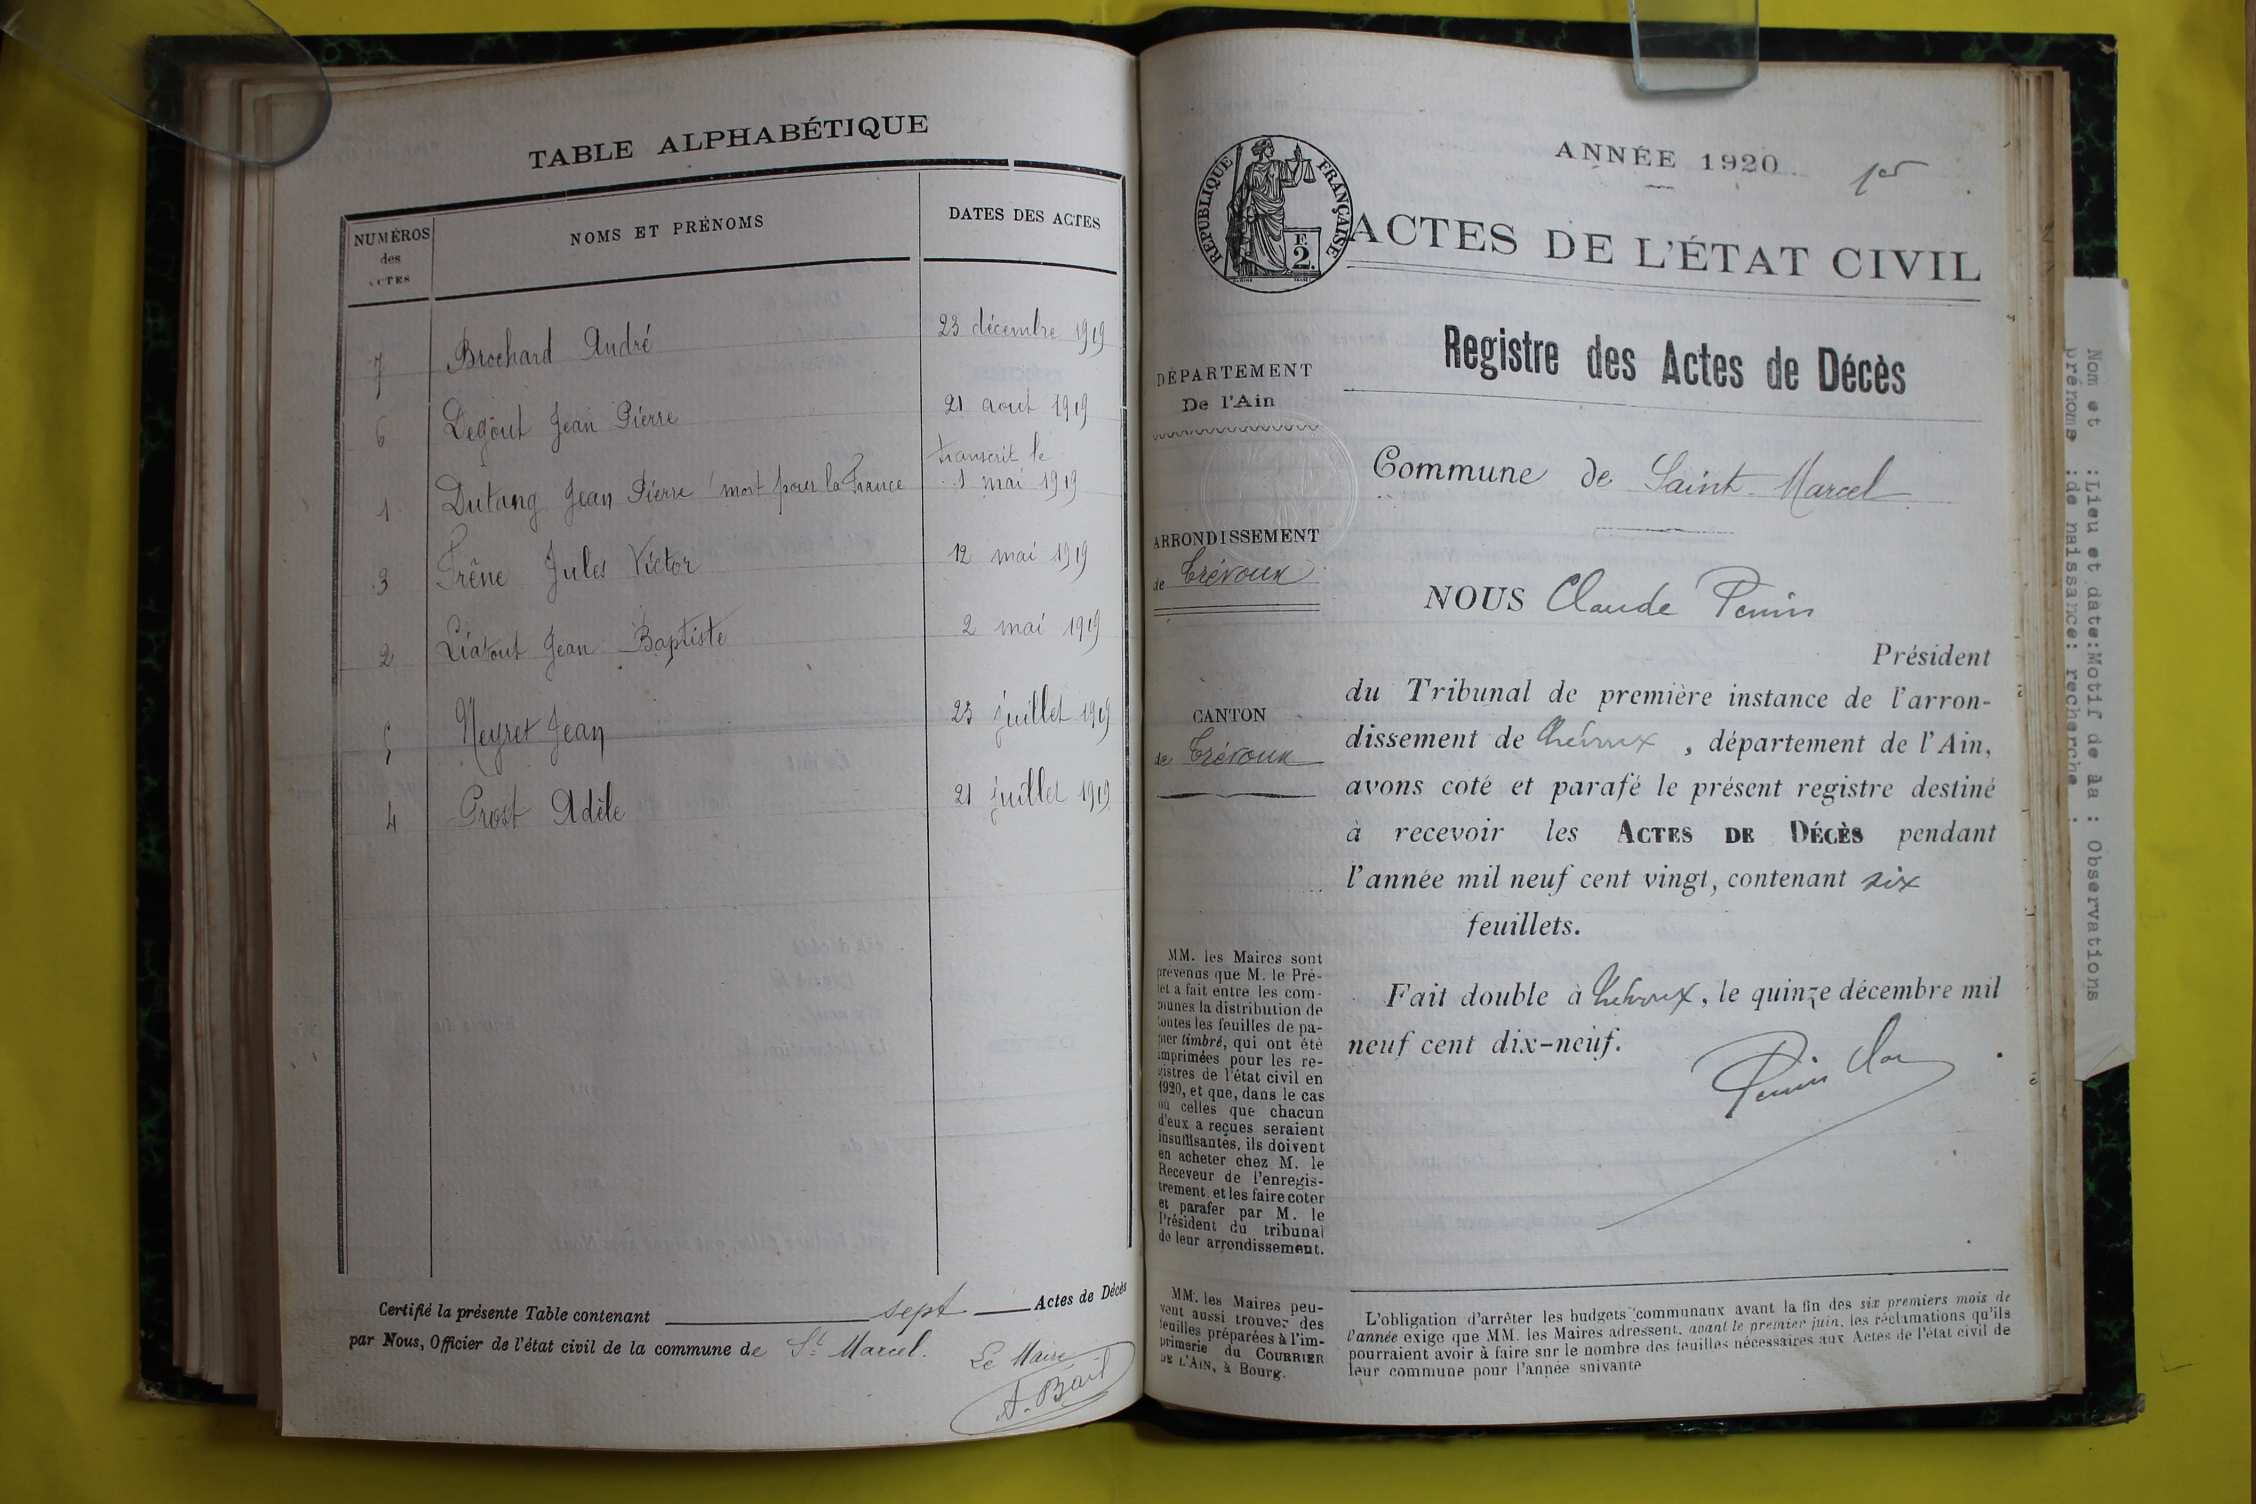 TABLE ALPHABÉTIQUE
NUMÉROS des ACTES
NOMS ET PRÉNOMS
DATES DES ACTES
7 Brochard André 23 décembre 1919
6 Degout Jean Pierre 21 aout 1919
1 Dutang Jean Pierre "mort pour la France transcrit le 1 mai 1919
3 Frêne Jules Victor 12 mai 1919
2 Liatout Jean Baptiste 2 mai 1919
5 Neyret Jean 23 juillet 1919
4 Prost Adèle 21 juillet 1919
Certifié la présente Table contenant sept Actes de Décès
par Nous, Officier de l'état civil de la commune de St Marcel.
Le Maire
ANNÉE 1920
1er
RÉPUBLIQUE FRANÇAISE
F. 2.
ACTES DE L'ÉTAT CIVIL
Registre des Actes de Décès
DÉPARTEMENT
De l'Ain
Commune de Saint-Marcel
ARRONDISSEMENT
de Trévoux
CANTON
de Trévoux
NOUS Claude
Président
du Tribunal de première instance de l'arron-
dissement de Trévoux, département de l'Ain,
avons coté et parafé le présent registre destiné
à recevoir les ACTES DE DÉCÈS pendant
l'année mil neuf cent vingt, contenant six
feuillets.
Fait double à Trévoux, le quinze décembre mil
neuf cent dix-neuf.
MM. les Maires sont
prévenus que M. le Pré-
fet a fait entre les com-
munes la distribution de
toutes les feuilles de pa-
pier timbré, qui ont été
imprimées pour les re-
gistres de l'état civil en
1920, et que, dans le cas
où celles que chacun
d'eux a reçues seraient
insuffisantes, ils doivent
en acheter chez M. le
Receveur de l'enregis-
trement et les faire coter
et parafer par M. le
Président du tribunal
de leur arrondissement.
MM. les Maires peu-
vent aussi trouver des
feuilles préparées à l'im-
primerie du COURRIER
DE L'AIN, à Bourg.
L'obligation d'arrêter les budgets communaux avant la fin des six premiers mois de
l'année exige que MM. les Maires adressent, avant le premier juin, les réclamations qu'ils
pourraient avoir à faire sur le nombre des feuilles nécessaires aux Actes de l'état civil de
leur commune pour l'année suivante
Nom et :Lieu et date:Motif de la : Observations
prénoms :de naissance: recherche :